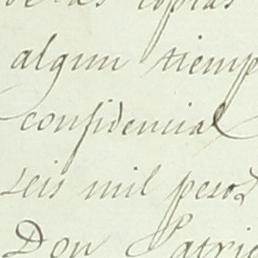 de las copias
algun tiemp
confidencial
seis mil pesos
Don Patric